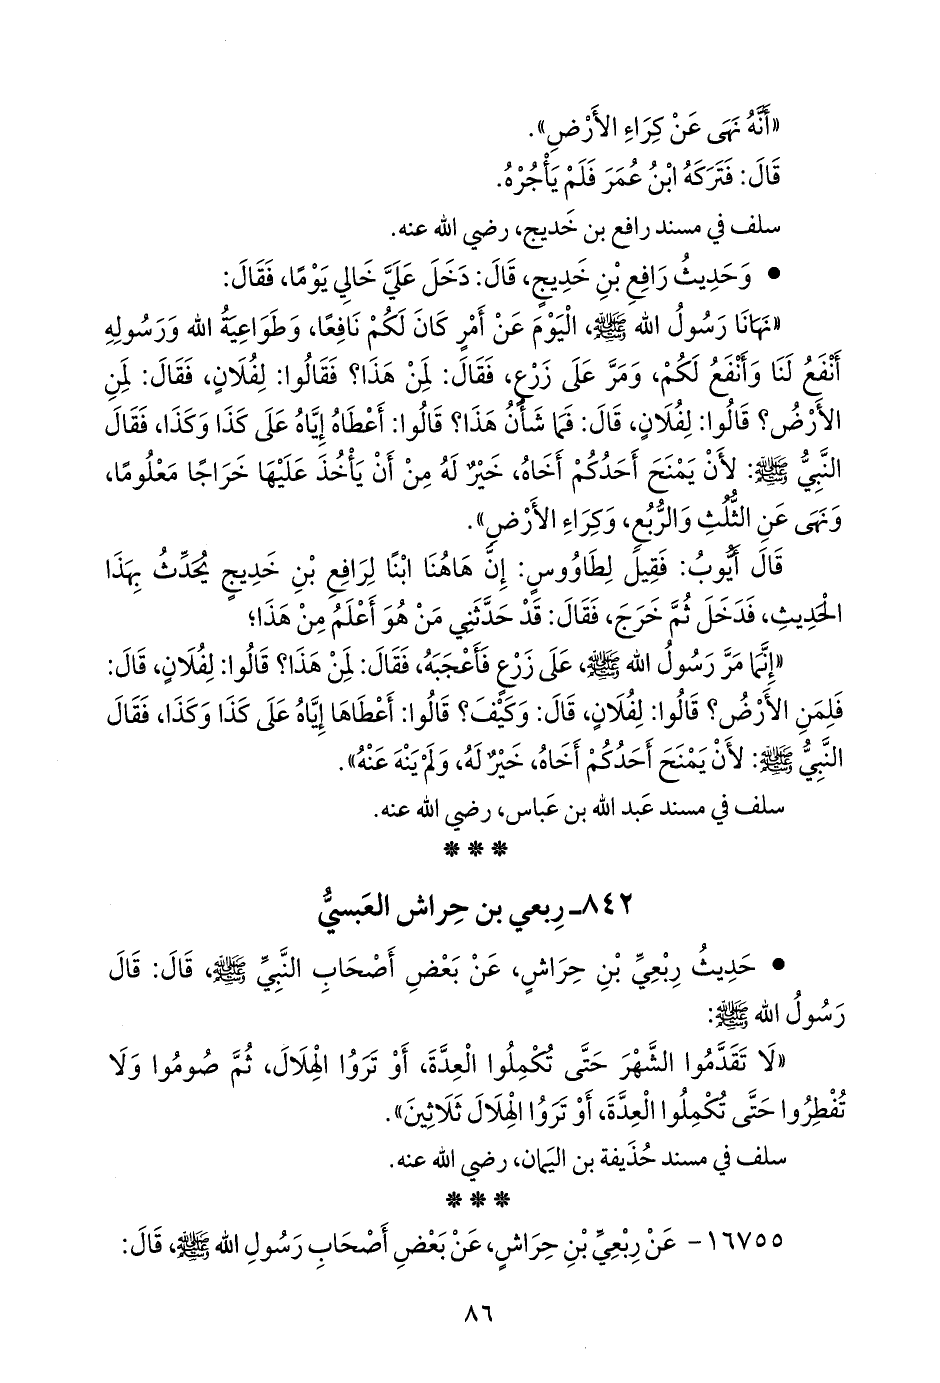 «أَنَّهُ نَهَى عَنْ كِرَاءِ الأَرْضِ».
قَالَ: فَتَرَكَهُ ابْنُ عُمَرَ فَلَمْ يَأْجُرْهُ.
سلف في مسند رافع بن خَديج، رضي الله عنه.
• وَحَدِيثُ رَافِعِ بْنِ خَدِيجٍ، قَالَ: دَخَلَ عَلَيَّ خَالِي يَوْمًا، فَقَالَ:
«نَهَانَا رَسُولُ الله ﷺ، الْيَوْمَ عَنْ أَمْرٍ كَانَ لَكُمْ نَافِعًا، وَطَوَاعِيَةُ الله وَرَسُولِهِ
أَنْفَعُ لَنَا وَأَنْفَعُ لَكُمْ، وَمَرَّ عَلَى زَرْعٍ، فَقَالَ: لِمَنْ هَذَا؟ فَقَالُوا: لِفُلَانٍ، فَقَالَ: لِمَنِ
الأَرْضُ؟ قَالُوا: لِفُلَانٍ، قَالَ: فَمَا شَأْنُ هَذَا؟ قَالُوا: أَعْطَاهُ إِيَّاهُ عَلَى كَذَا وَكَذَا، فَقَالَ
النَّبِيُّ ﷺ: لأَنْ يَمْنَحَ أَحَدُكُمْ أَخَاهُ، خَيْرٌ لَهُ مِنْ أَنْ يَأْخُذَ عَلَيْهَا خَرَاجًا مَعْلُومًا،
وَنَهَى عَنِ الثُّلُثِ وَالرُّبُعِ، وَكِرَاءِ الأَرْضِ».
قَالَ أَيُّوبُ: فَقِيلَ لِطَاوُوسٍ: إِنَّ هَاهُنَا ابْنًا لِرَافِعِ بْنِ خَدِيجٍ يُحَدِّثُ بِهَذَا
الْحَدِيثِ، فَدَخَلَ ثُمَّ خَرَجَ، فَقَالَ: قَدْ حَدَّثَنِي مَنْ هُوَ أَعْلَمُ مِنْ هَذَا؛
«إِنَّمَا مَرَّ رَسُولُ الله ﷺ، عَلَى زَرْعٍ فَأَعْجَبَهُ، فَقَالَ: لِمَنْ هَذَا؟ قَالُوا: لِفُلَانٍ، قَالَ:
فَلِمَنِ الأَرْضُ؟ قَالُوا: لِفُلَانٍ، قَالَ: وَكَيْفَ؟ قَالُوا: أَعْطَاهَا إِيَّاهُ عَلَى كَذَا وَكَذَا، فَقَالَ
النَّبِيُّ ﷺ: لأَنْ يَمْنَحَ أَحَدُكُمْ أَخَاهُ، خَيْرٌ لَهُ، وَلَمْ يَنْهَ عَنْهُ».
سلف في مسند عَبد الله بن عَباس، رضي الله عنه.
***
٨٤٢ـ رِبعي بن حِراش العَبسيُّ
• حَدِيثُ رِبْعِيِّ بْنِ حِرَاشٍ، عَنْ بَعْضِ أَصْحَابِ النَّبِيِّ ﷺ، قَالَ: قَالَ
رَسُولُ الله ﷺ:
«لَا تَقَدَّمُوا الشَّهْرَ حَتَّى تُكْمِلُوا الْعِدَّةَ، أَوْ تَرَوُا الْهِلَالَ، ثُمَّ صُومُوا وَلَا
تُفْطِرُوا حَتَّى تُكْمِلُوا الْعِدَّةَ، أَوْ تَرَوُا الْهِلَالَ ثَلَاثِينَ».
سلف في مسند حُذَيفة بن اليَمان، رضي الله عنه.
***
١٦٧٥٥- عَنْ رِبْعِيِّ بْنِ حِرَاشٍ، عَنْ بَعْضِ أَصْحَابِ رَسُولِ الله ﷺ، قَالَ:
٨٦